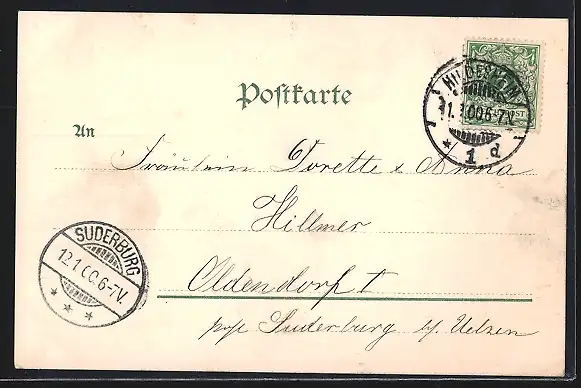 Postkarte
HILDESHEIM
11.1.00.6-7.V.
* 1 d
An
Fräulein Dorette & Anna
Hillmer
Oldendorf I
SUDERBURG
12.1.00.6-7.V.
* * *
p/o Suderburg b/ Uelzen